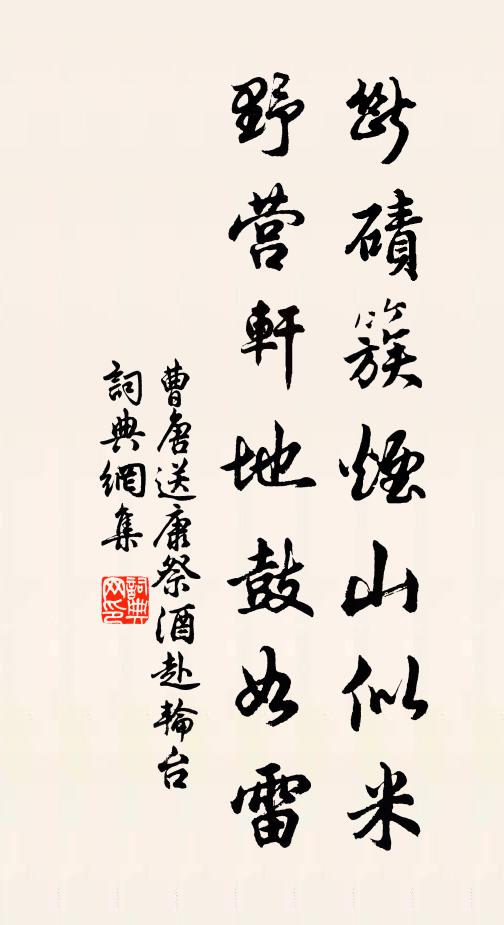 斷磧簇煙山似米
野营軒地鼓如雷
曹唐送康祭酒赴輪台
詞典網集
詞典
网印